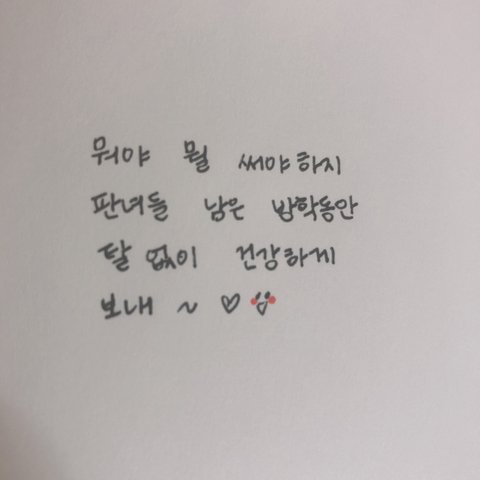 뭐야 뭘 써야하지
판녀들 남은 방학동안
탈 없이 건강하게
보내 ~ ♡